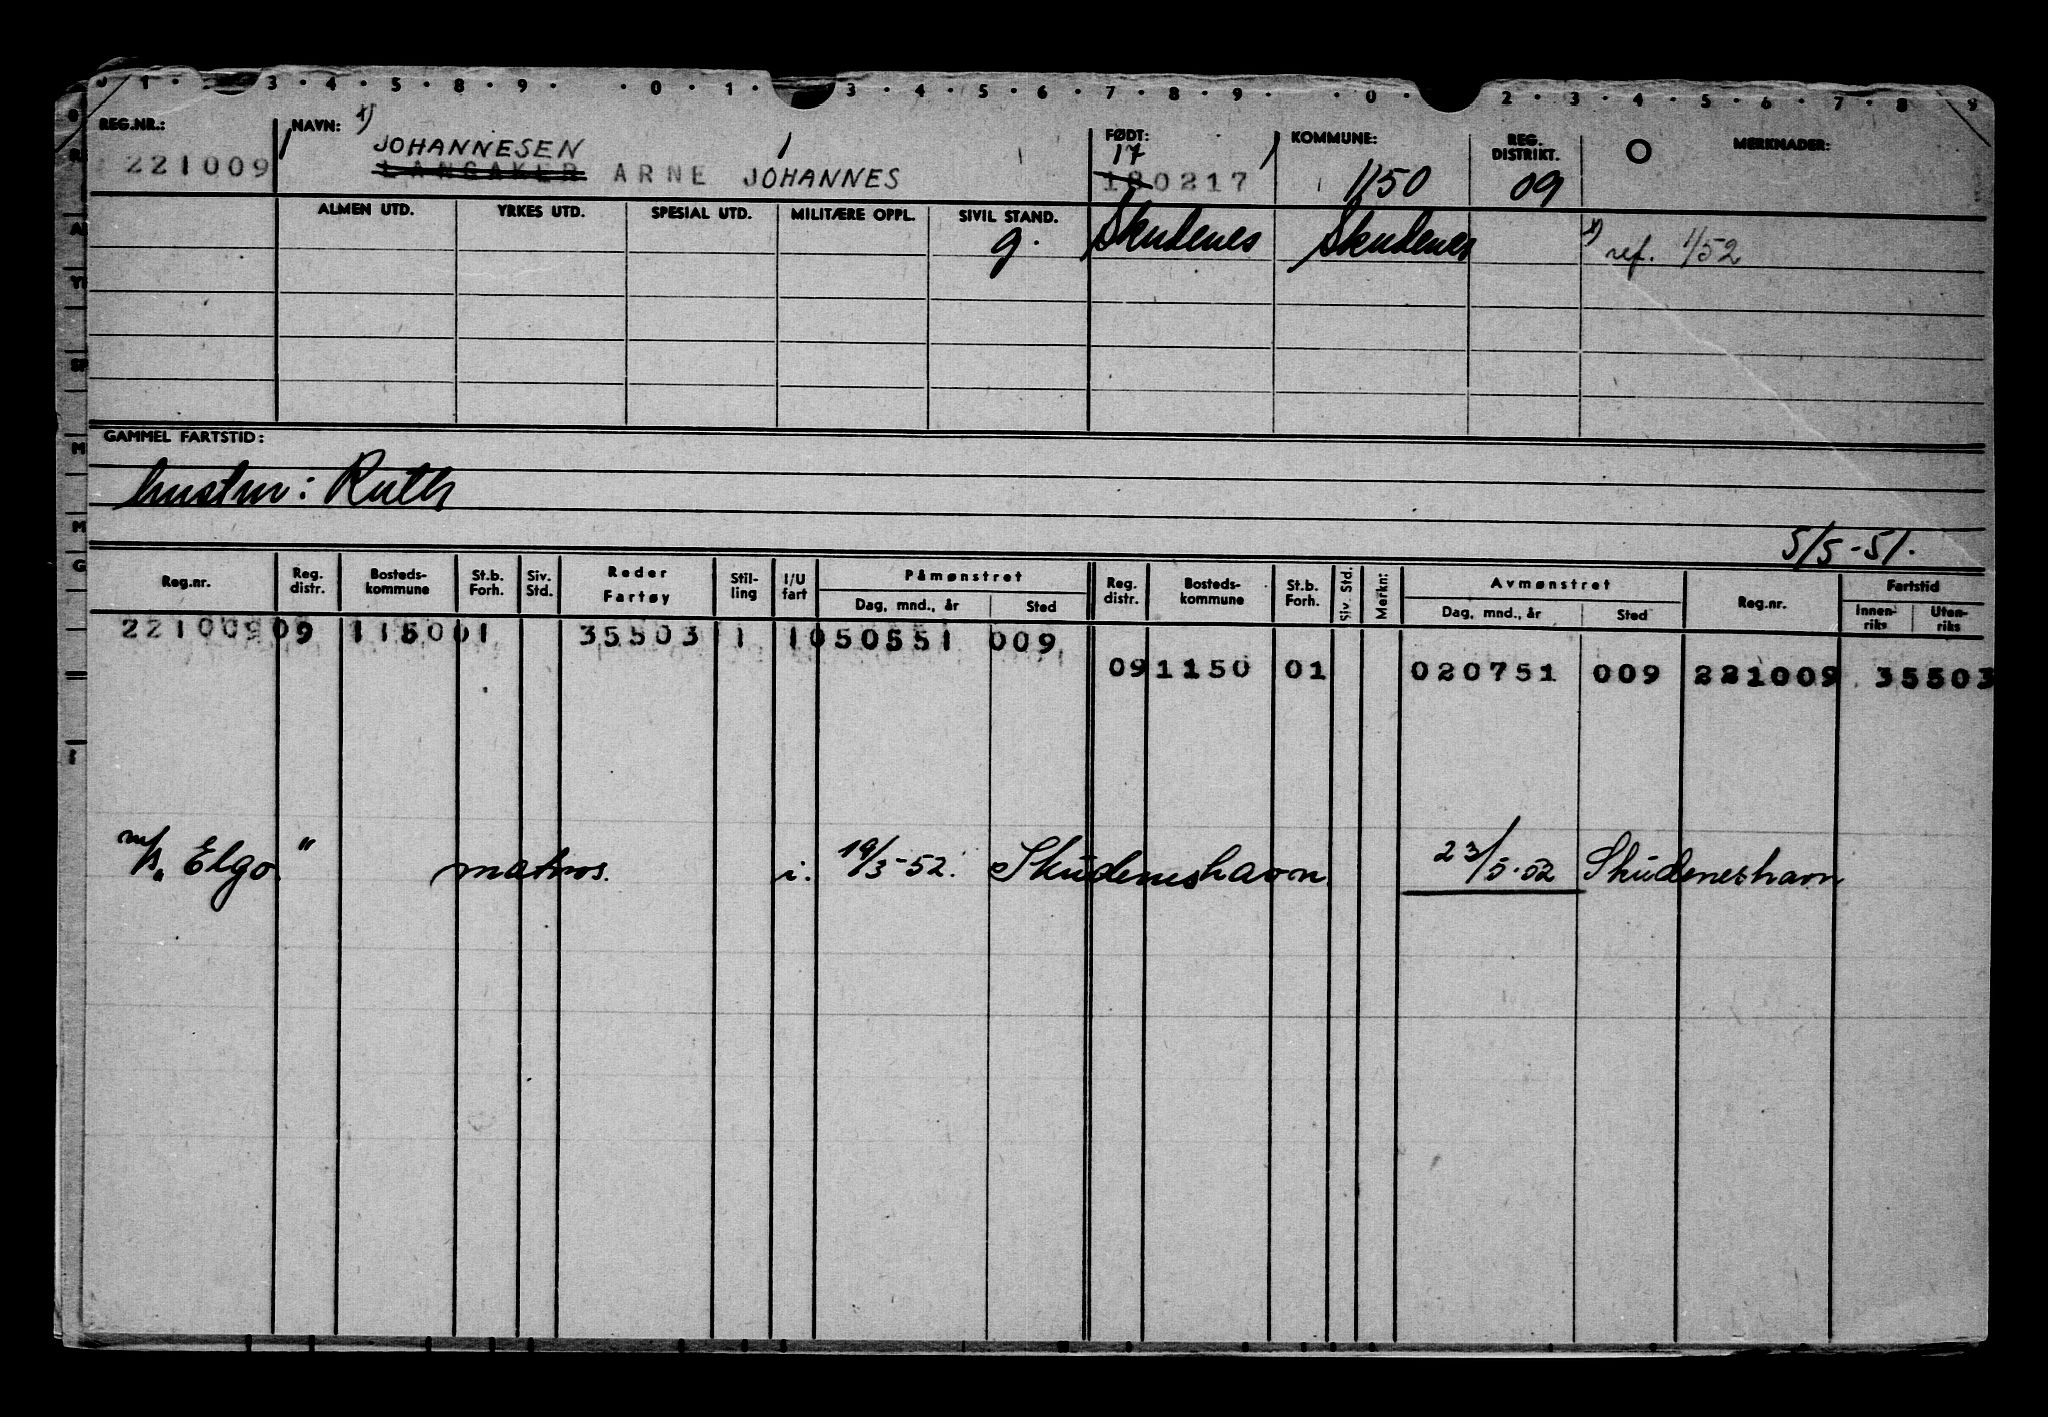 0 1 · 2 · 3 · 4 · 5 · 8 · 9 · · 0 · 1 · 3 · 4 · 5 · 6 · 7 · 8 · 9 · · 0 · 2 · 3 · 4 · 5 · 6 · 7 · 8 · 9
REG.NR.: NAVN: x) FØDT: KOMMUNE: REG. DISTRIKT. O MERKNADER:
JOHANNESEN 17
221009 LANGAKER ARNE JOHANNES 180217 1150 09
ALMEN UTD. YRKES UTD. SPESIAL UTD. MILITÆRE OPPL. SIVIL STAND.
g. Skudenes Skudenes x) ref. 1/52
GAMMEL FARTSTID:
hustru: Ruth
5/5-51.
Reg.nr. Reg. distr. Bosteds-kommune St.b. Forh. Siv. Std. Reder Fartøy Stil-ling I/U fart Påmønstret Reg. distr. Bosteds-kommune St.b. Forh. Siv. Std. Merkn: Avmønstret Reg.nr. Fartstid
Dag, mnd., år Sted Dag, mnd., år Sted Innen-riks Uten-riks
221009 09 1150 01 35503 1 1 050551 009
09 1150 01 020751 009 221009 35503
m/s "Elgo" matros. i. 19/3-52. Skudeneshavn 23/5-52 Skudeneshavn